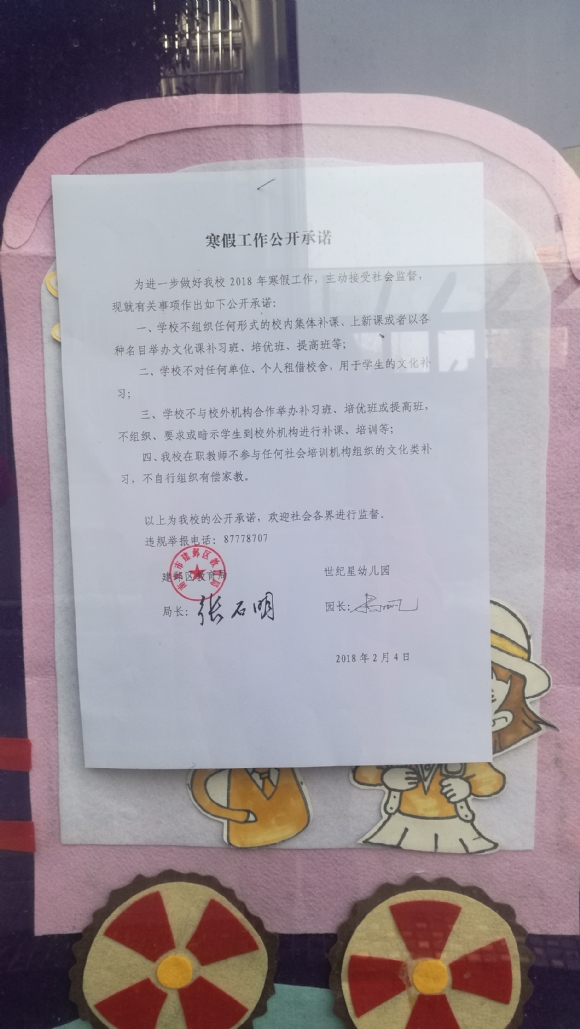 寒假工作公开承诺
为进一步做好我校 2018 年寒假工作，主动接受社会监督，
现就有关事项作出如下公开承诺：
一、学校不组织任何形式的校内集体补课、上新课或者以各
种名目举办文化课补习班、培优班、提高班等；
二、学校不对任何单位、个人租借校舍，用于学生的文化补
习；
三、学校不与校外机构合作举办补习班、培优班或提高班，
不组织、要求或暗示学生到校外机构进行补课、培训等；
四、我校在职教师不参与任何社会培训机构组织的文化类补
习，不自行组织有偿家教。
以上为我校的公开承诺，欢迎社会各界进行监督。
违规举报电话：87778707
建邺区教育局
世纪星幼儿园
局长：张石明
园长：
2018 年 2 月 4 日